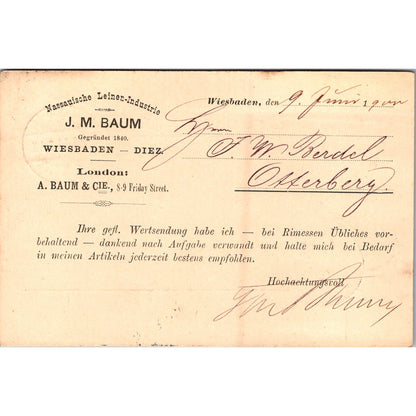 Nassauische Leinen-Industrie
J. M. BAUM
Gegründet 1840.
WIESBADEN — DIEZ.
London:
A. BAUM & CIE., 8-9 Friday Street.
Wiesbaden, den 9. Juni 1900
Herrn
F. W. Berdel
Otterberg.
Ihre gefl. Wertsendung habe ich — bei Rimessen Übliches vor-
behaltend — dankend nach Aufgabe verwandt und halte mich bei Bedarf
in meinen Artikeln jederzeit bestens empfohlen.
Hochachtungsvoll